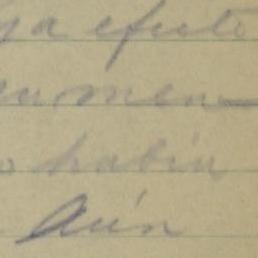 ya efecto
en men
o habia
Aún